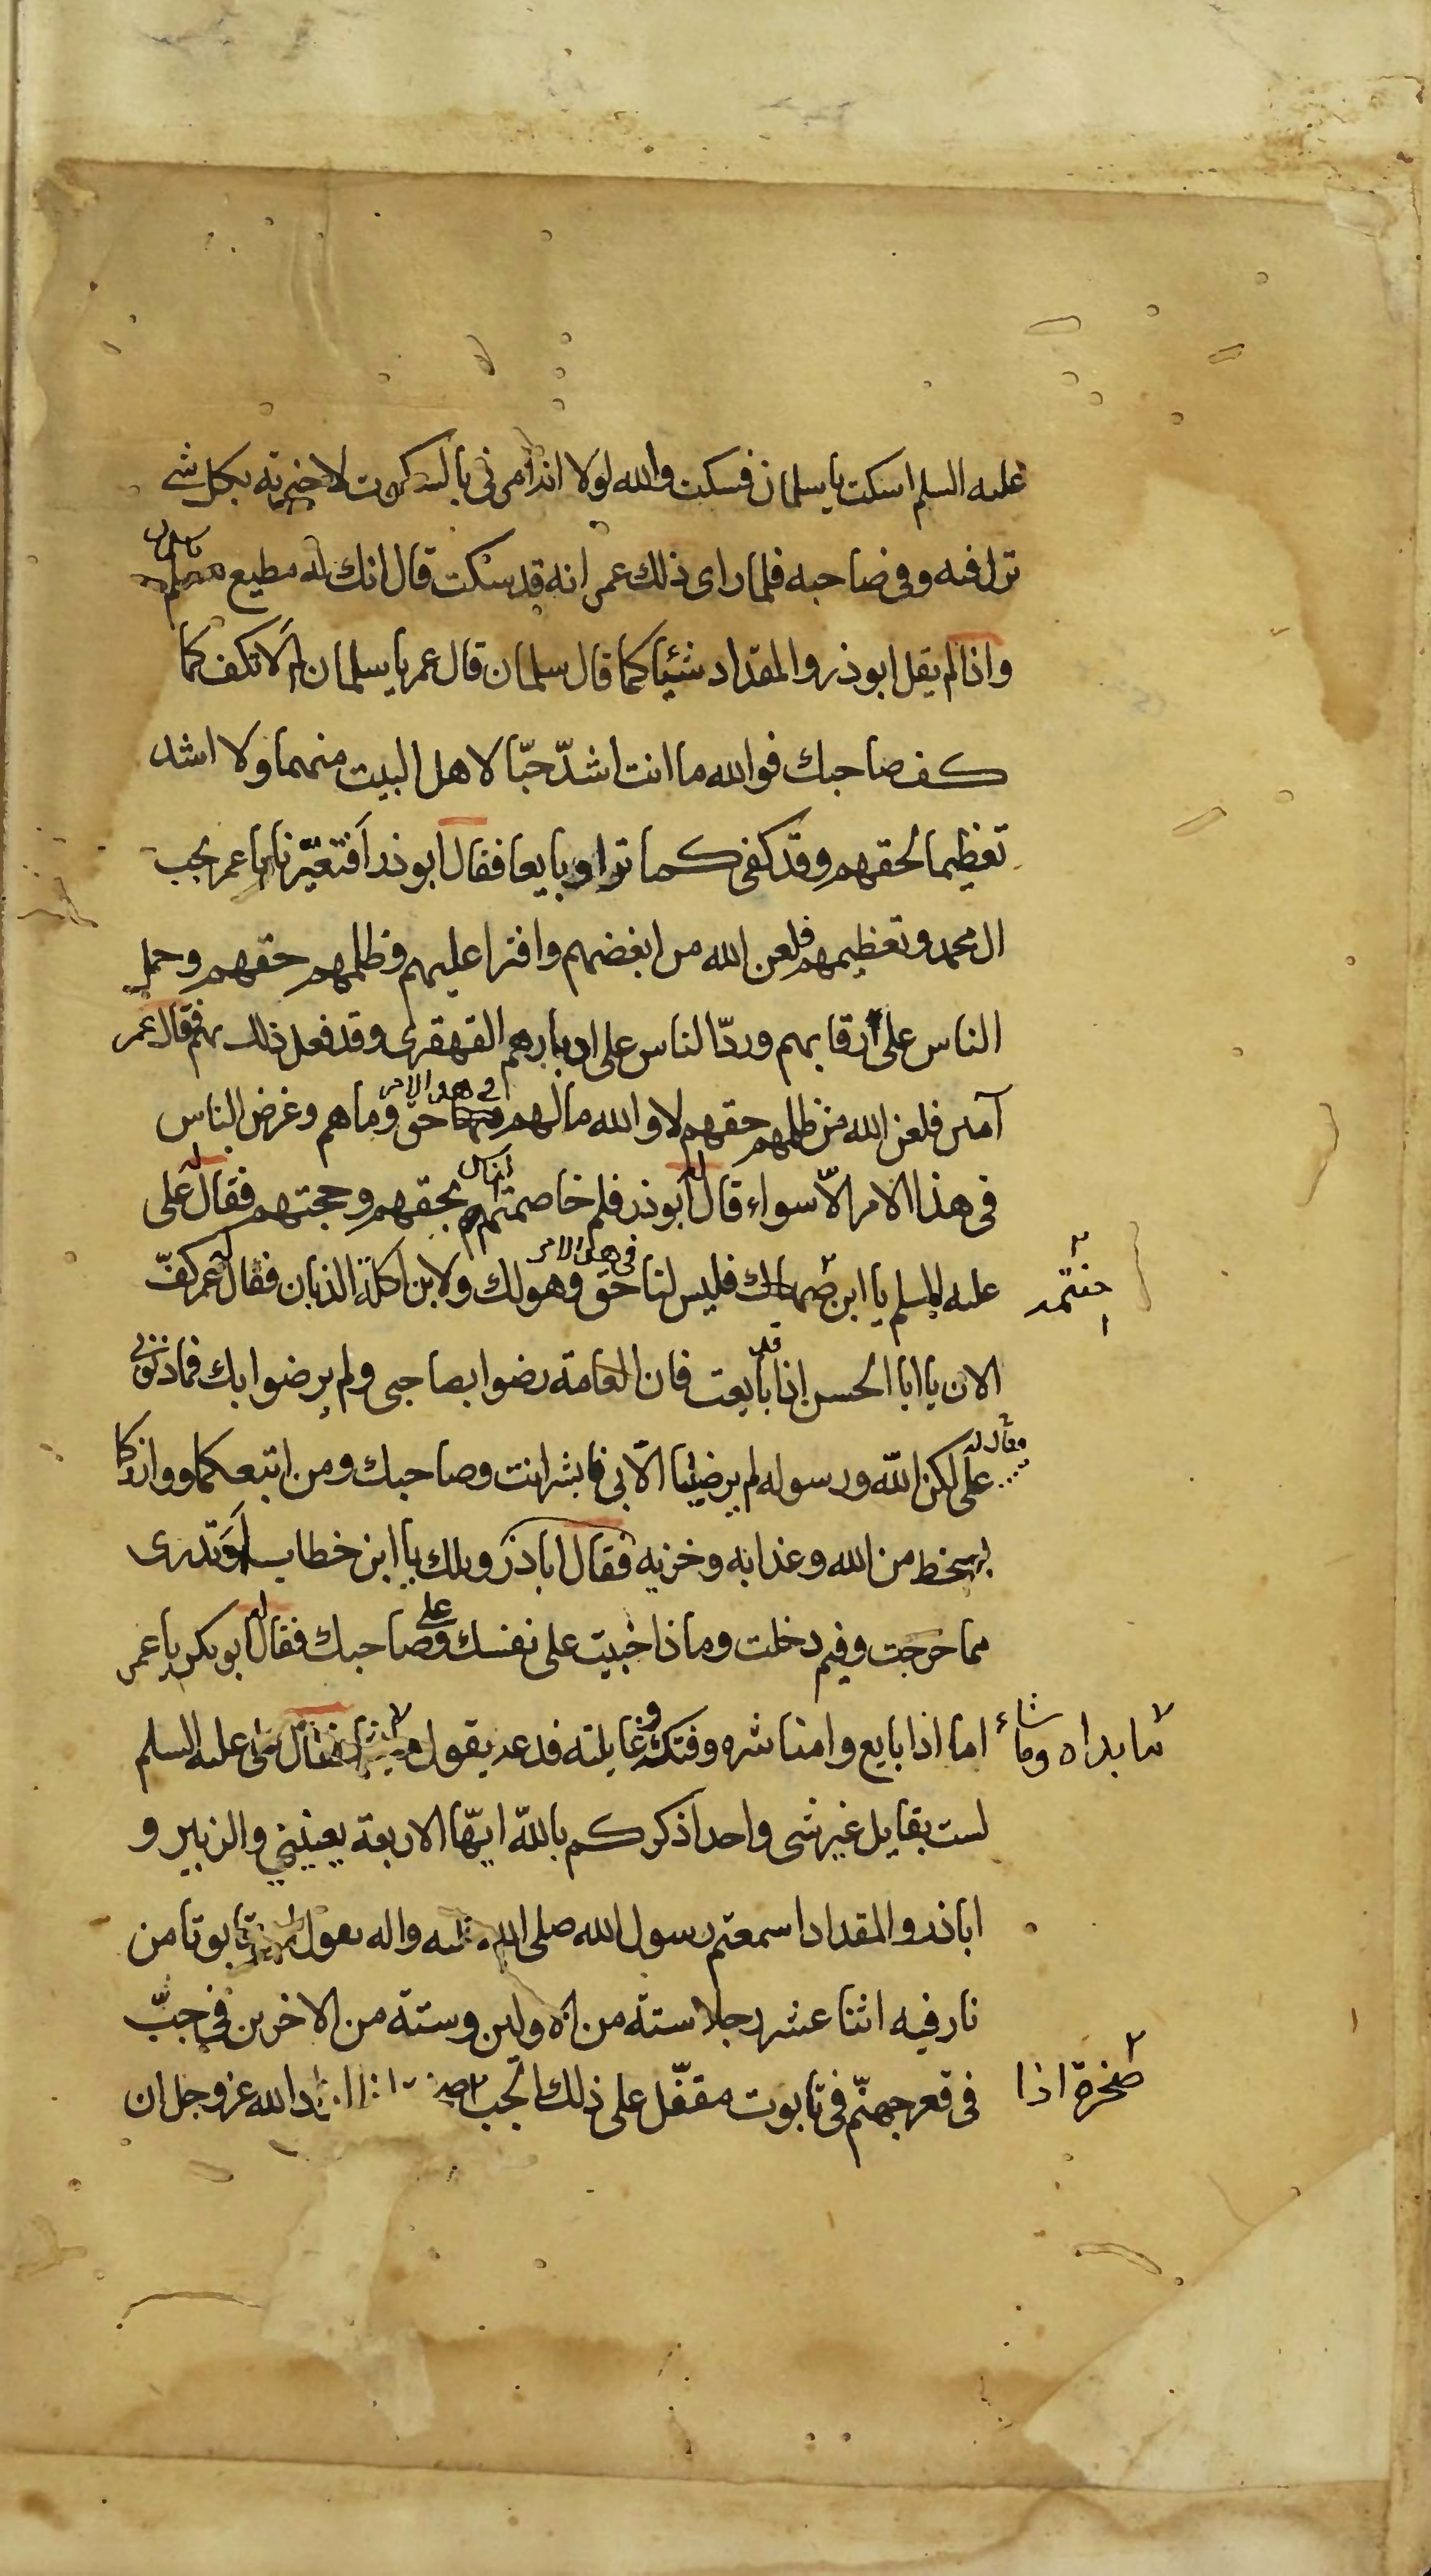 عليه السلم اسكت يا سلمان فسكت والله لولا انه امرنى بالسكوت لاخبرته بكل شىء
نزل فيه وفى صاحبه فلما راى ذلك عمر انه قد سكت قال انك له مطيع مسلم
واذا لم يقل ابوذر والمقداد شيئا كما قال سلمان قال عمر يا سلمان الا تكف كما
كف صاحبك فوالله ما انت اشدّ حبّا لاهل البيت منهما ولا اشد
تعظيما لحقهم وقد كفى كما ترا وبايعا فقال ابوذر افتعيّرنا يا عمر بحب
ال محمد وتعظيمهم فلعن الله من ابغضهم وافترا عليهم وظلمهم حقهم وحمل
الناس على رقابهم وردّ الناس على ادبارهم القهقرى وقد فعل ذلك بهم فقال عمر
آمين فلعن الله من ظلمهم حقهم لا والله ما لهم فى هذا الامر حق وما هم وعرض الناس
فى هذا الامر الّا سواء قال ابوذر فلم خاصمتم بحقهم وحجتهم فقال على
عليه السلم يا ابن صهاك فليس لنا فى هذا الامر حق وهو لك ولابن اكلة الذبان فقال له عمر كفّ
حنتمه
الان يا ابا الحسن اذا قد بايعت فان العامة رضوا بصاحبى ولم يرضوا بك فما ذنبى
فقال له على لكن الله ورسوله لم يرضيا الّا بى فابشر انت وصاحبك ومن اتبعكما ووازركما
بسخط من الله وعذابه وخزيه فقال اباذر ويلك يا ابن خطاب اوَتدرى
مما خرجت وفيم دخلت وماذا جنيت على نفسك وعلى صاحبك فقال ابوبكر يا عمر
اما اذا بايع وامنا شره وفتكه وغايلته فدعه يقول ما شاء فقال على عليه السلم
ما بداه وما شاء
لست بقايل غير شى واحد اذكركم بالله ايّها الاربعة يعنينى والزبير و
اباذر والمقداد اسمعتم رسول الله صلى الله عليه واله يقول تابوتا من
نار فيه اثنا عشر رجلا ستة من الاولين وستة من الاخرين فى جبّ
فى قعر جهنّم فى تابوت مقفّل على ذلك الجب اراد الله عزوجل ان
صخرة اذا